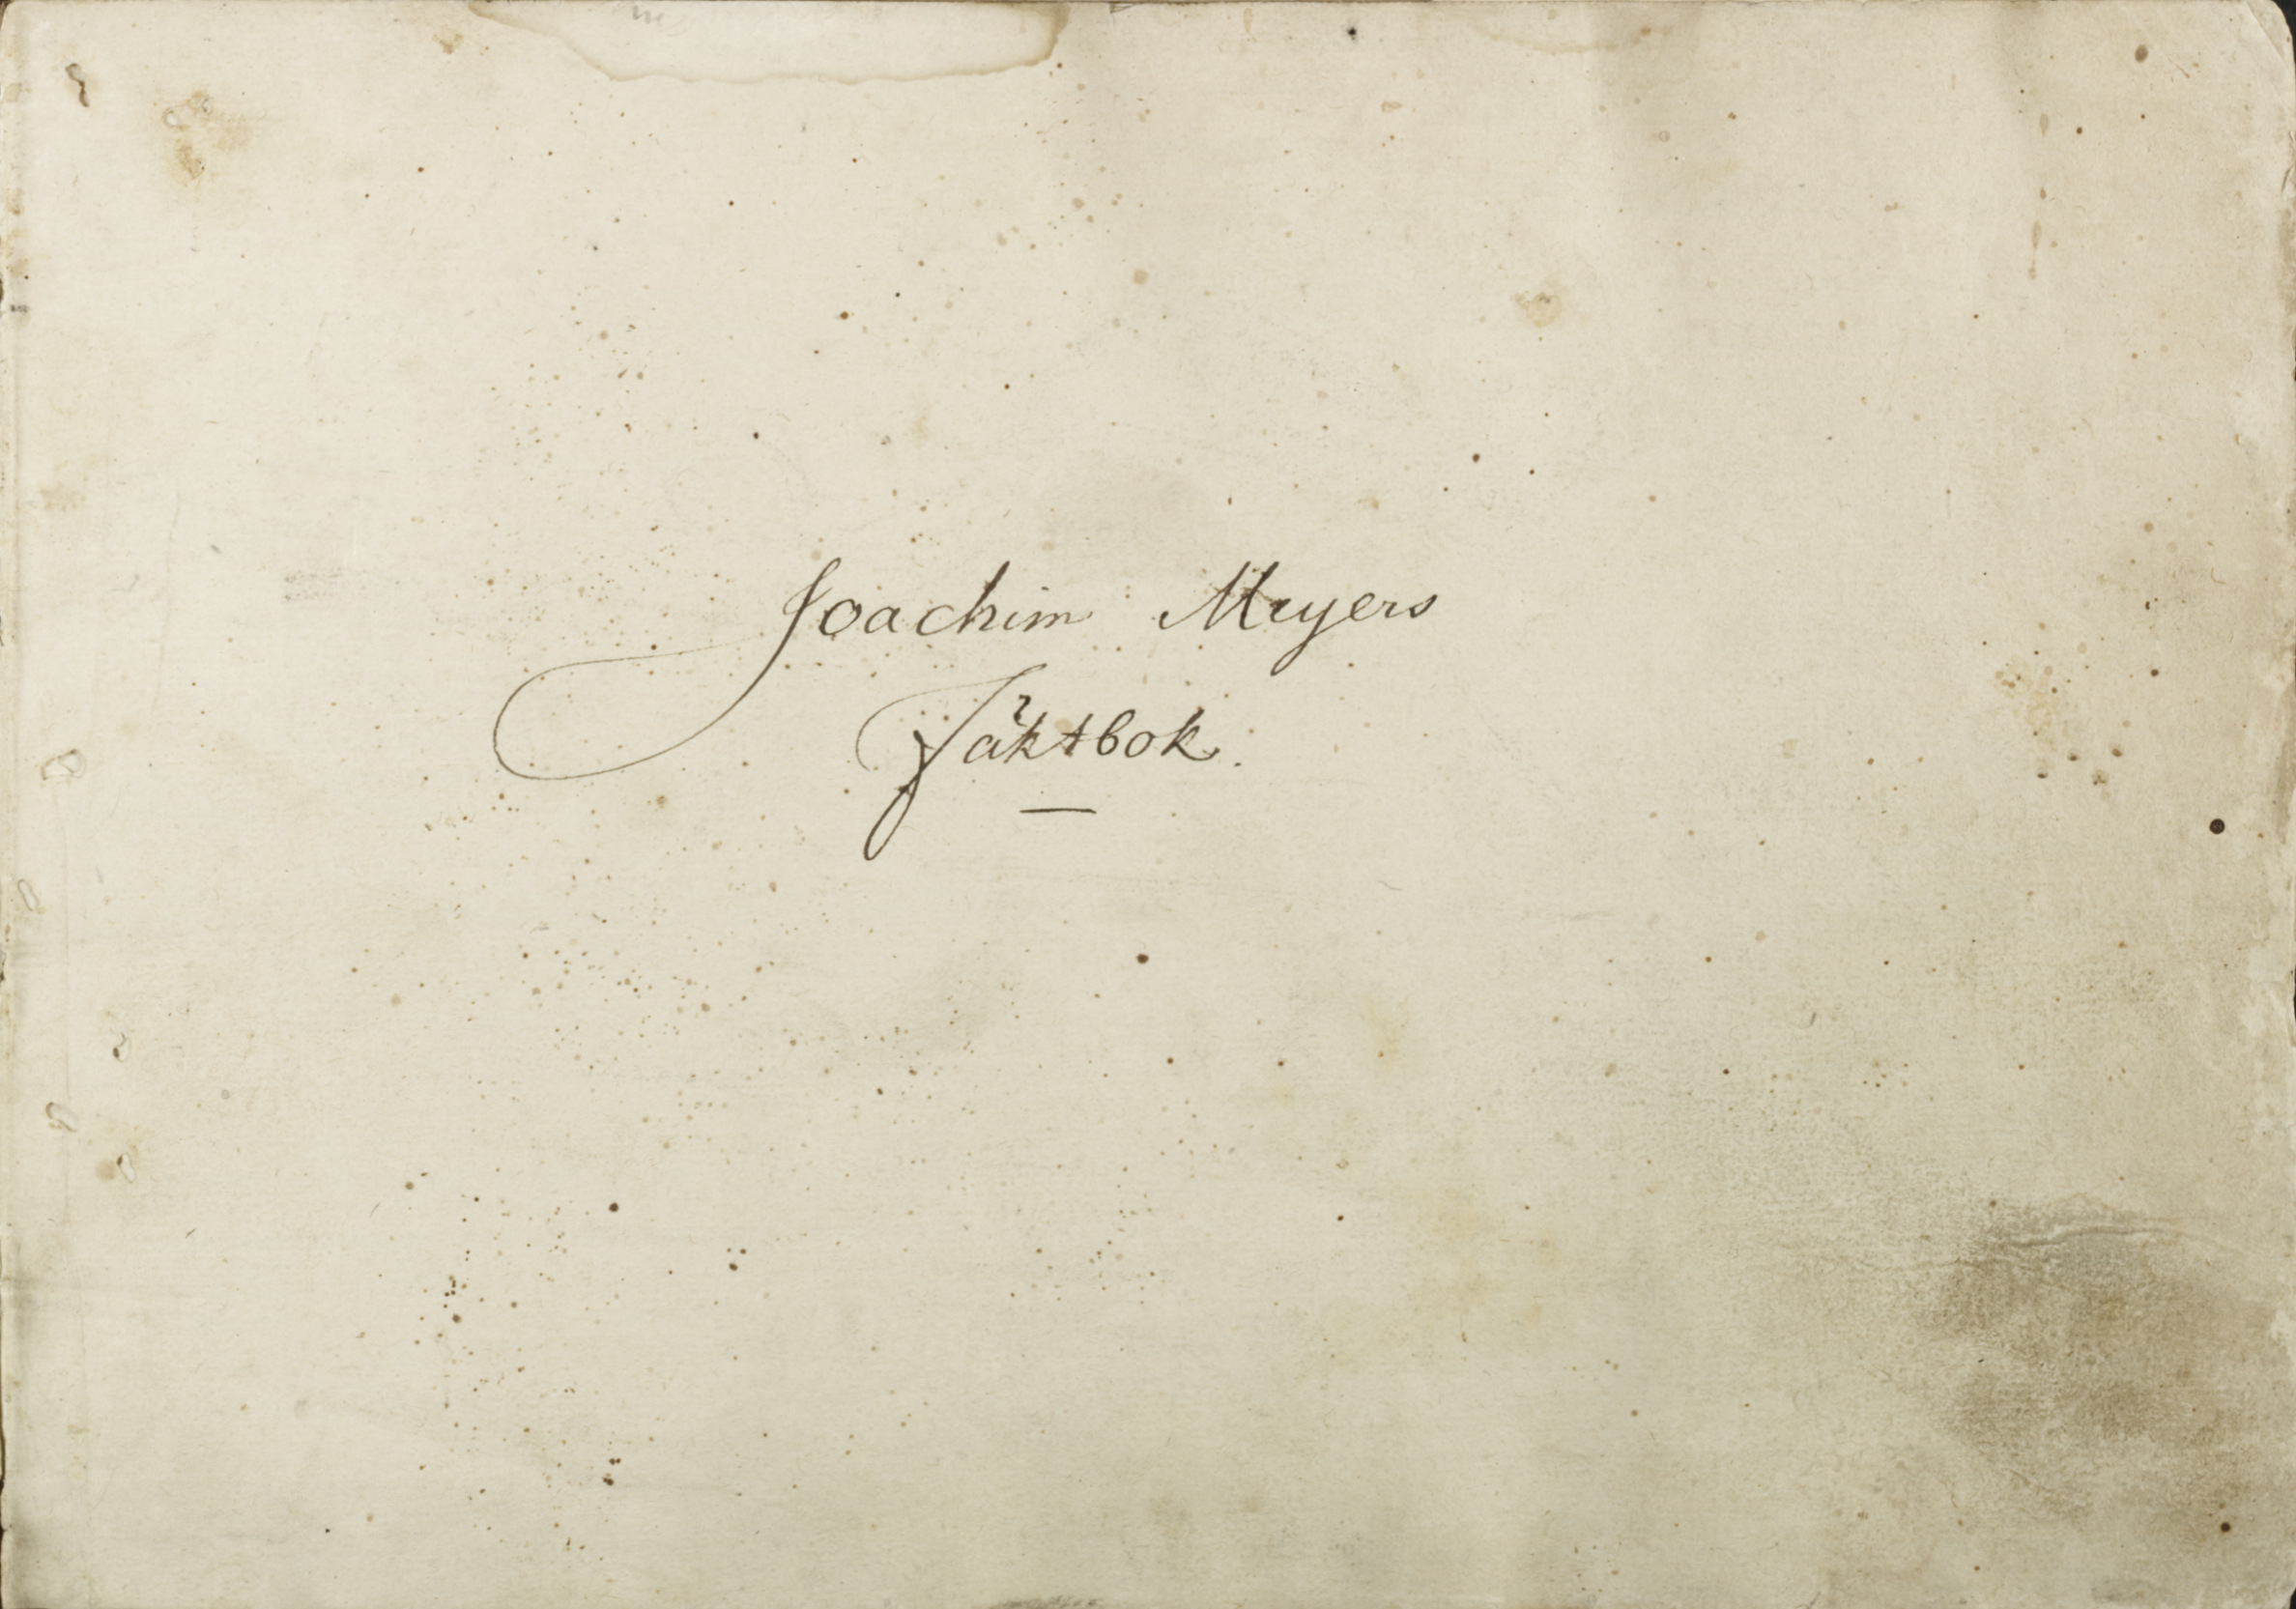 Joachim Meyers
Fäktbok.